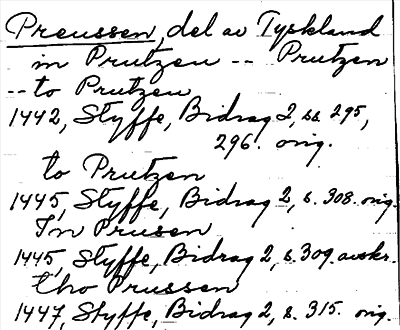 Preussen, del av Tyskland
in Prutzen -- Prutzen
-- to Prutzen
1442, Styffe, Bidrag 2, ss 295,
296. orig.
to Prutzen
1445, Styffe, Bidrag 2, s. 308. orig.
In Prusen
1445, Styffe, Bidrag 2, s. 309. avskr.
tho Prussen
1447, Styffe, Bidrag 2, s. 315. orig.